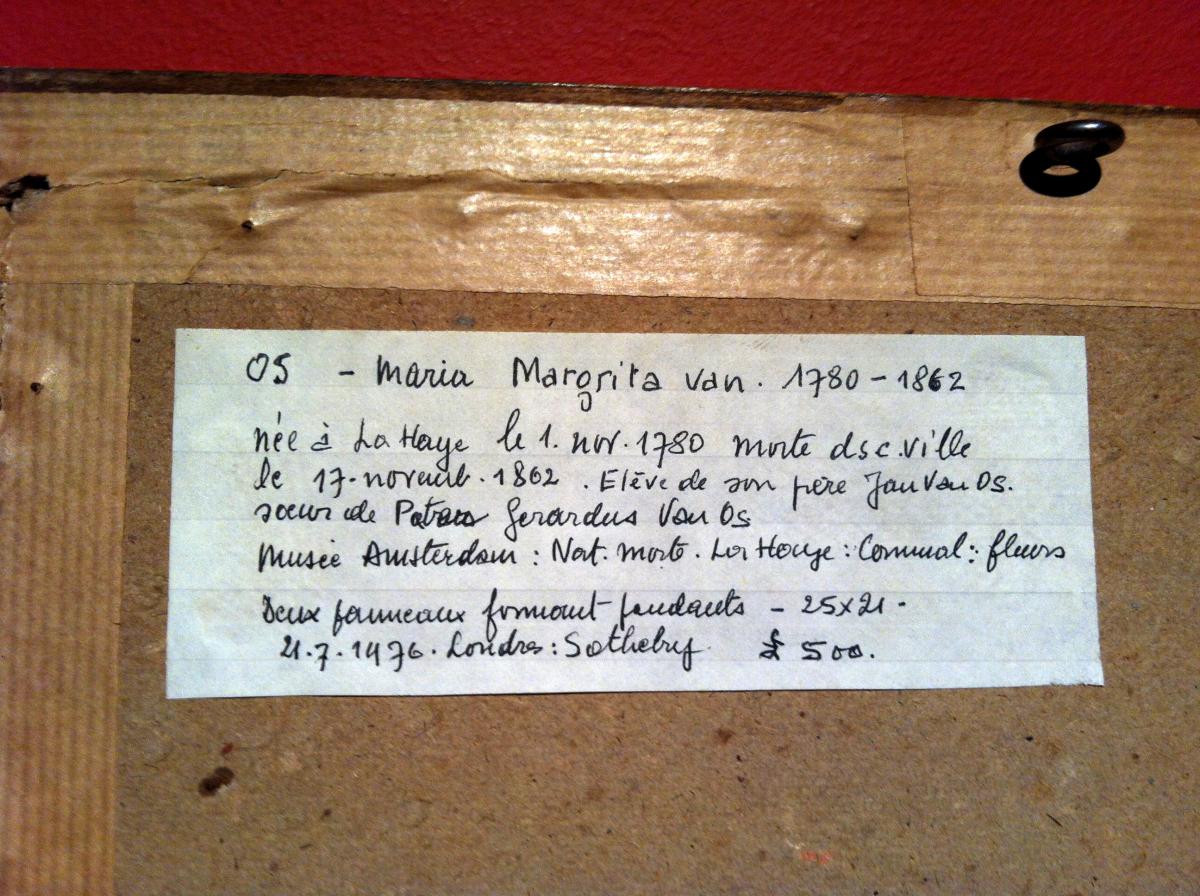 OS - Maria Margrita van. 1780-1862
née à La Haye le 1. nov. 1780 morte ds c. ville
le 17. novemb. 1862. Elève de son père Jan Van Os.
soeur de Gerardus Van Os
Musée Amsterdam: Nat. morte. La Haye: Communal: fleurs
Deux panneaux formant pendants - 25x21.
21.7.1976. Londres: Sotheby £ 500.